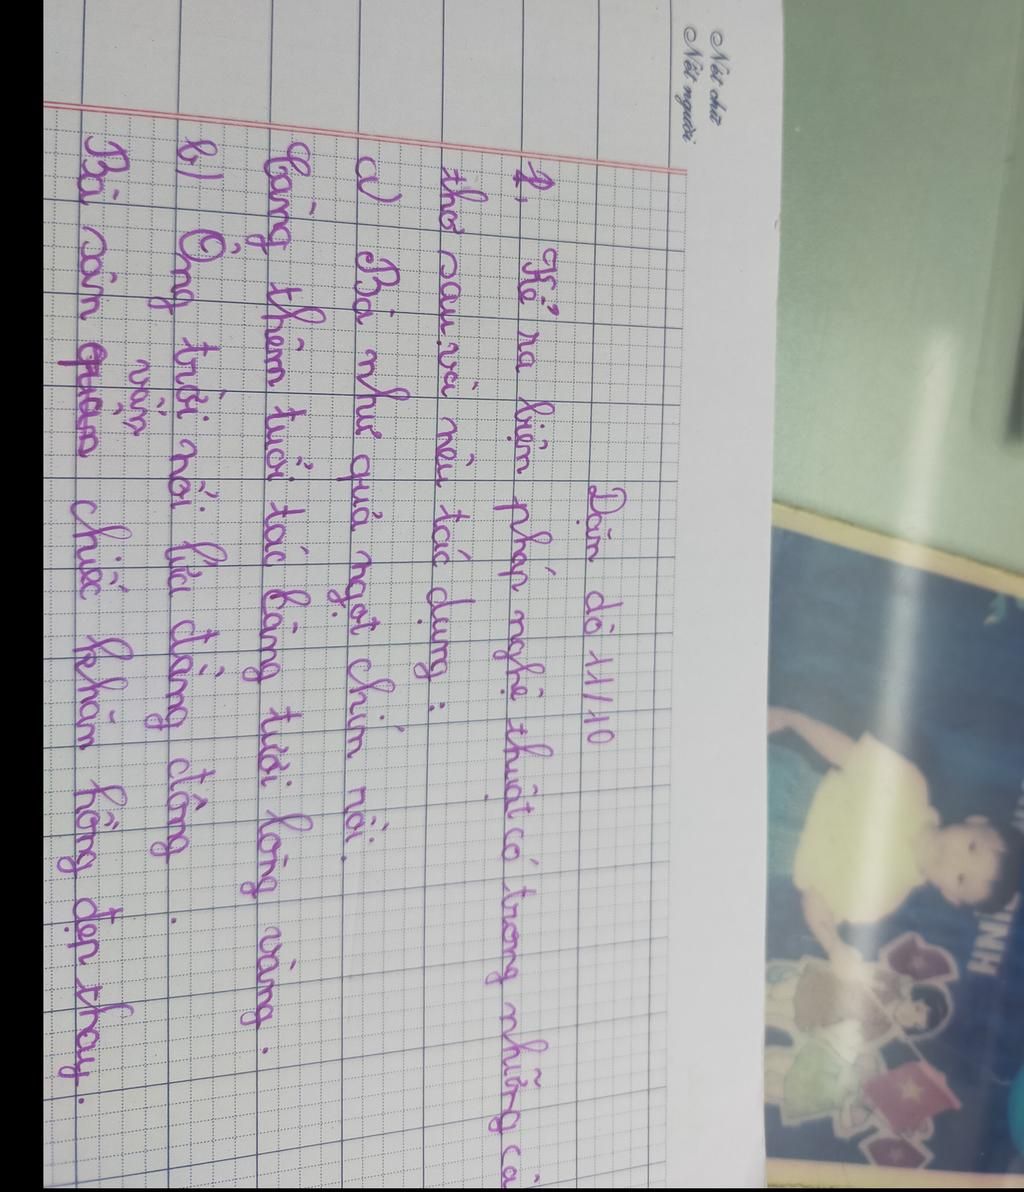 Nét chữ
Nết người
Dặn dò 11/10
1, Kể ra biện pháp nghệ thuật có trong những câ
thơ sau và nêu tác dụng :
a) Bà như quả ngọt chín rồi.
Càng thêm tuổi tác càng tươi lòng vàng.
b) Ông trời nổi lửa đằng đông.
vấn
Bà sân chiếc khăn hồng đẹp thay.
HNI